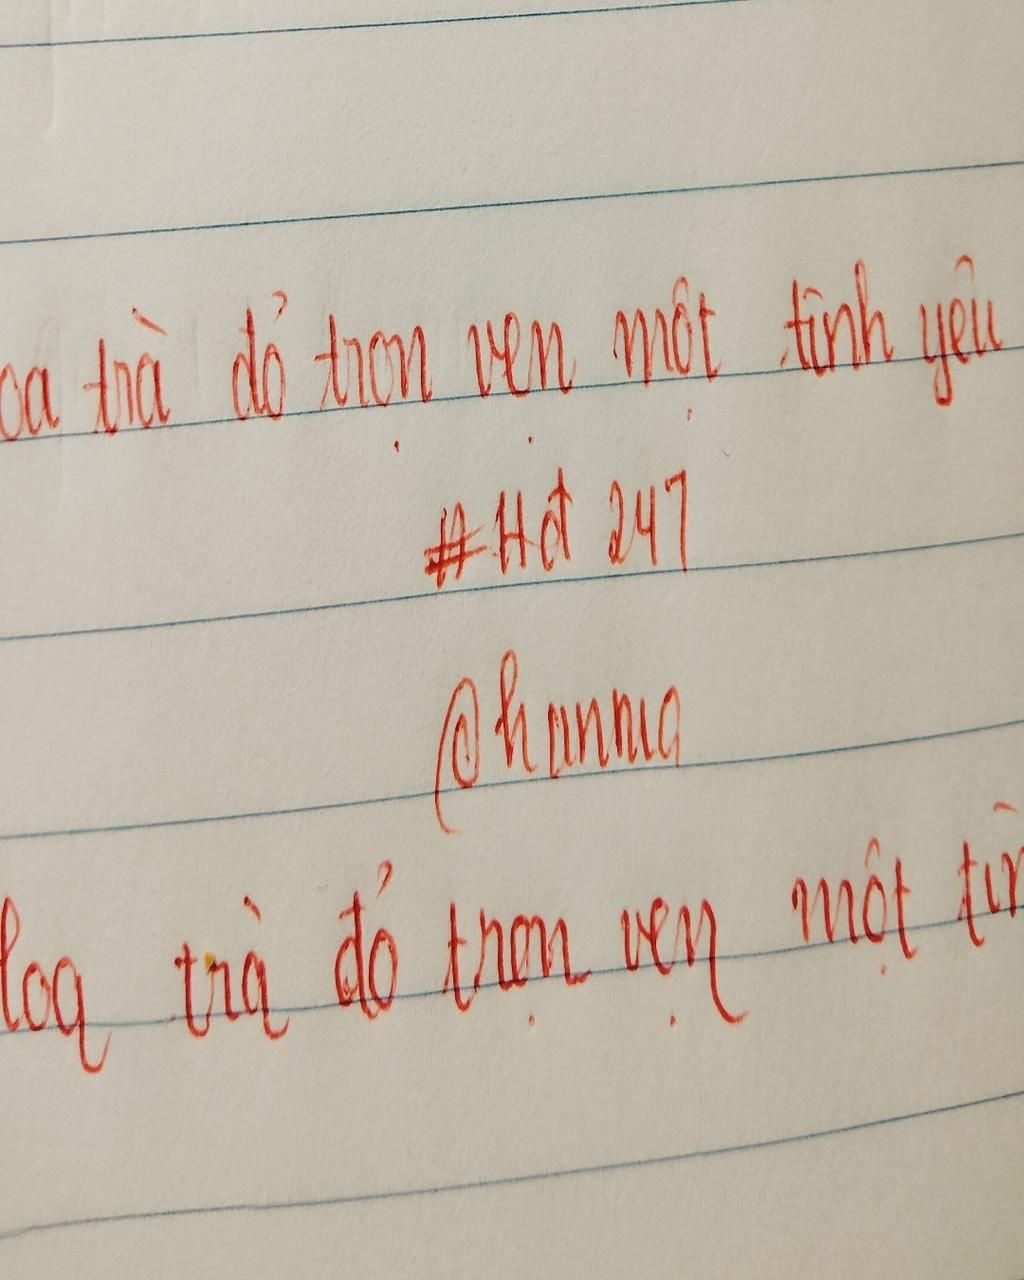 oa trà đỏ trọn vẹn một tình yêu
#Hđ 247
@hannia
loa trà đỏ trọn vẹn một tìn